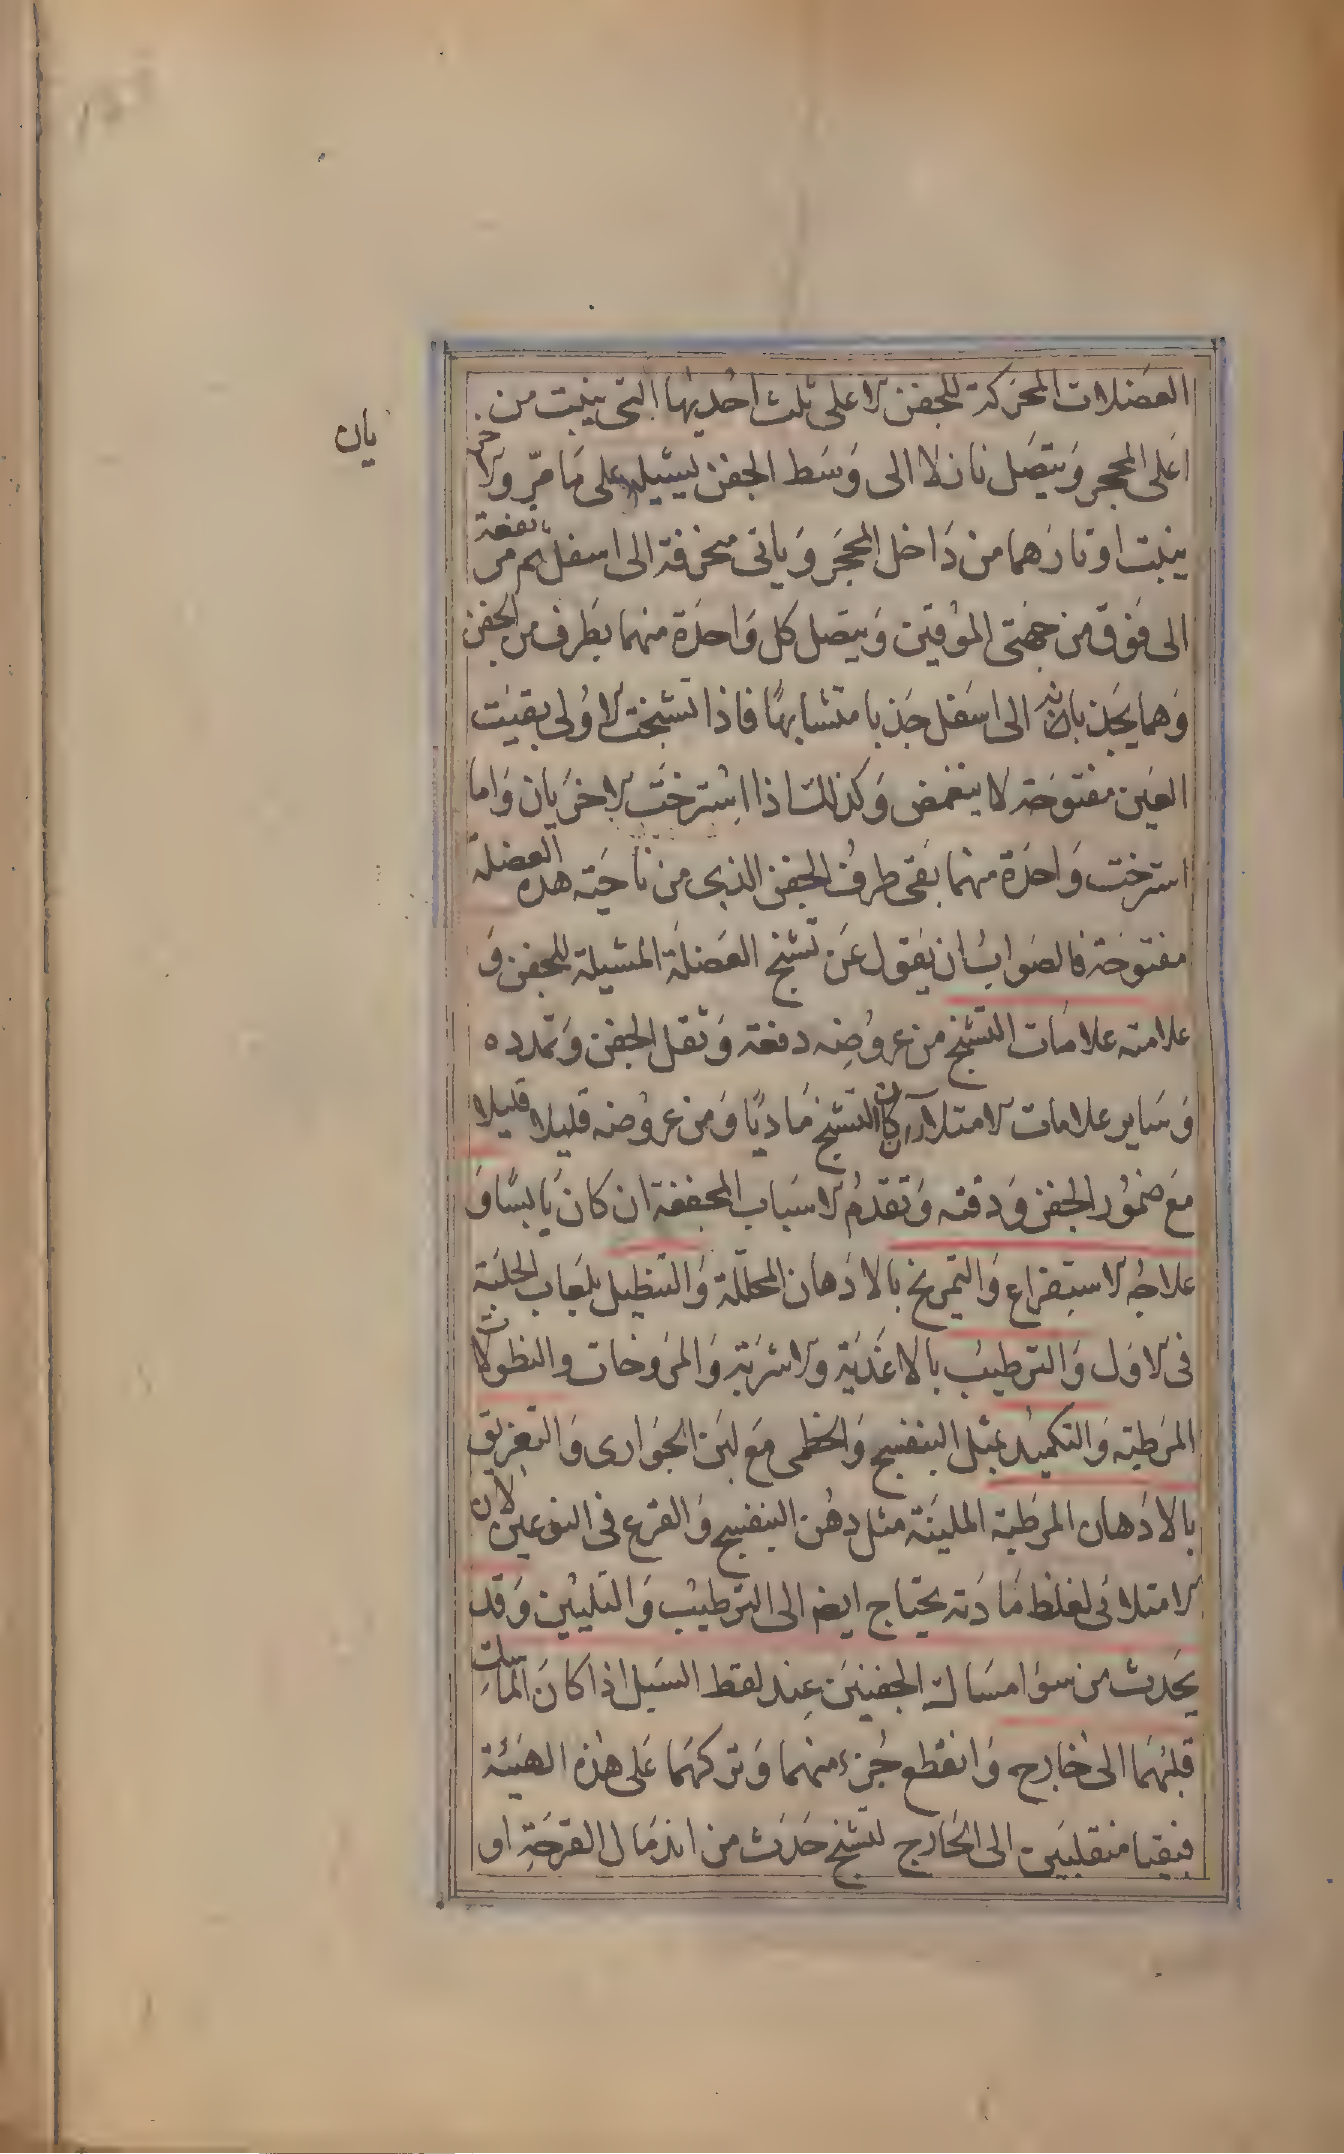 العضلات المحركة للجفن الاعلى ثلث احديها التى ينبت من
اعلى المحجر ويتصل نازلا الى وسط الجفن ليشيله على ما مر والاخر
يان
ينبت اوتارهما من داخل المحجر وياتى منحرفة الى اسفل ثم مرتفعة
الى فوق من جهتى الموقين ويتصل كل واحدة منهما بطرف من الجفن
وهما يجذبانه الى اسفل جذبا متشابها فاذا تشنجت الاولى بقيت
العين مفتوحة لا ينغمض وكذلك اذا استرخت الاخريان واما
استرخت واحدة منهما بقى طرف الجفن الذى من ناحية هذه العضلة
مفتوحة فالصواب ان يقول عن تشنج العضلة المشيلة للجفن و
علامته علامات التشنج من عروضه دفعة وثقل الجفن وتمدده
وساير علامات الامتلا ان كان التشنج ماديا ومن عروضه قليلا قليلا
مع ضمور الجفن ودقته وتقدم الاسباب المجففة ان كان يابسا و
علاجه الاستفراغ والتمريخ بالادهان المحللة والتنطيل بلعاب الحلبة
فى الاول والترطيب بالاغذية والاشربة والمروخات والنطولات
المرطبة والتكميد بمثل البنفسج والخطمى مع لبن الجوارى والتعريق
بالادهان المرطبة الملينة مثل دهن البنفسج والقرع فى النوعين لان
الامتلائى لغلظ مادته يحتاج ايضا الى الترطيب والتليين وقد
يحدث من سوء امساك الجفنين عند لقط السبل اذا كان الماسك
قلبهما الى خارج وانقطع جزء منهما وتركهما على هذه الهيئة
فبقيا منقلبين الى الخارج لتشنج حدث من اندمال القرحة او